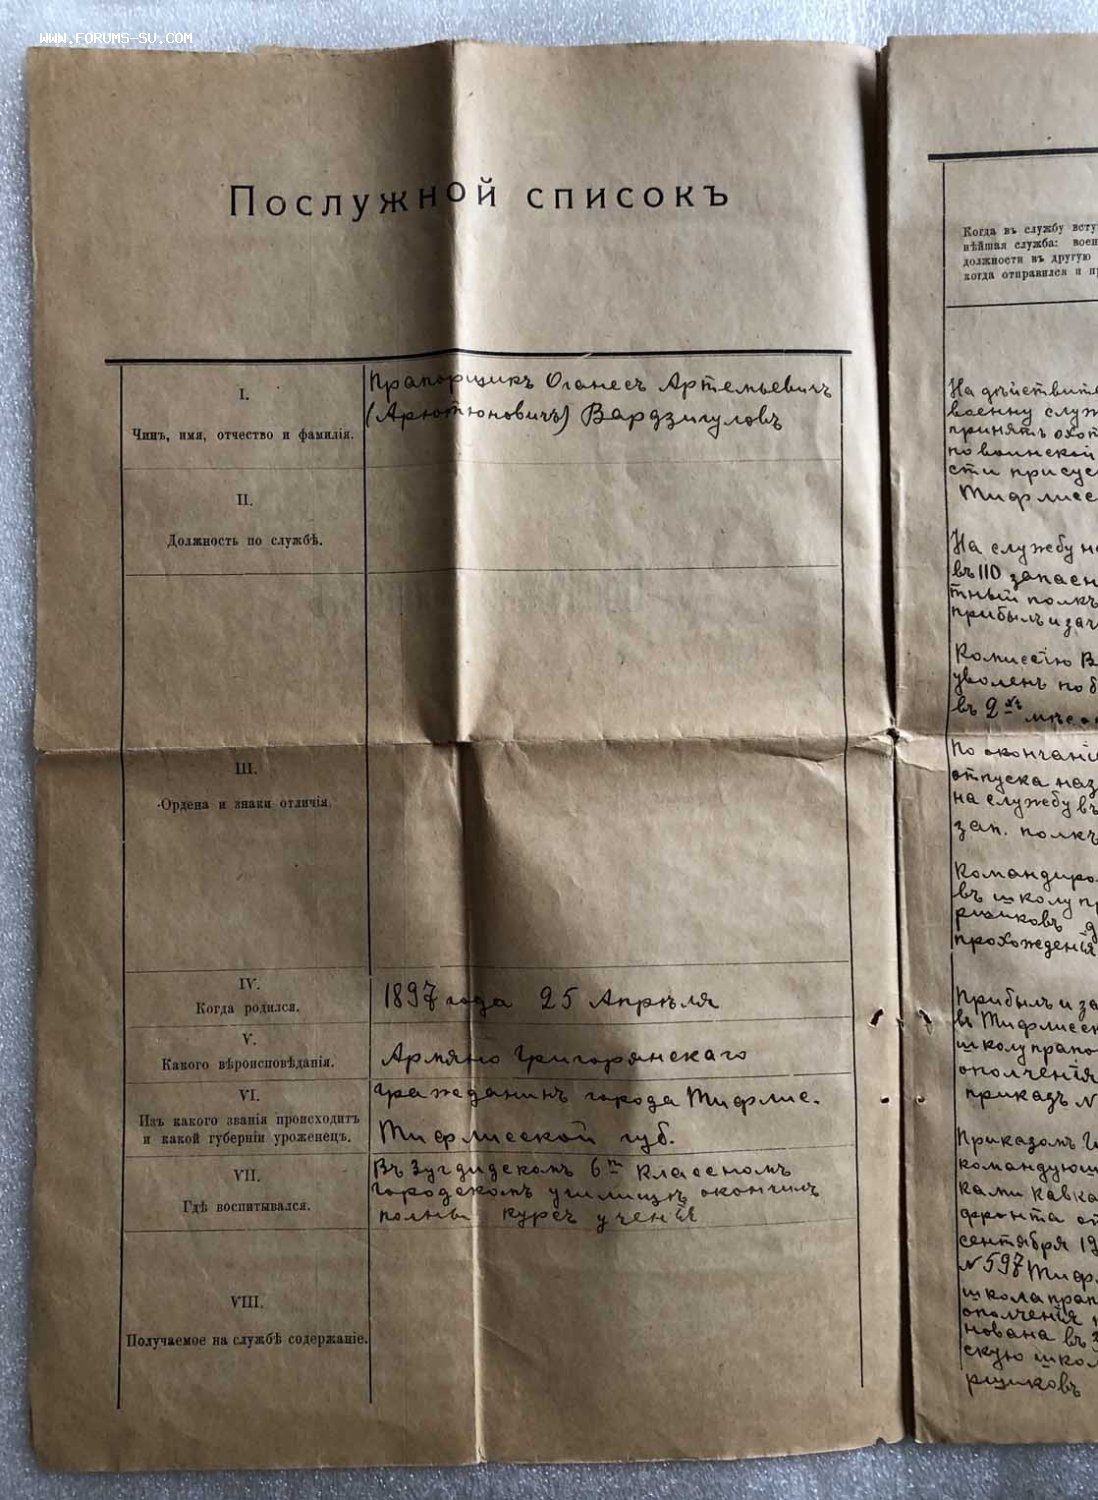 WWW.FORUMS-SU.COM
Послужной списокъ
I.
Чинъ, имя, отчество и фамилія.
Прапорщикъ Оганесъ Артемьевичъ
(Арютюновичъ) Вардзигуловъ
II.
Должность по службѣ.
III.
Ордена и знаки отличія.
IV.
Когда родился.
1897 года 25 Апрѣля
V.
Какого вѣроисповѣданія.
Армяно Григорянскаго
VI.
Изъ какого званія происходитъ
и какой губерніи уроженецъ.
Гражданинъ города Тифлис.
Тифлисской губ.
VII.
Гдѣ воспитывался.
Въ Зугдидскомъ 6ти классномъ
городскомъ училищѣ окончилъ
полный курсъ ученія
VIII.
Получаемое на службѣ содержаніе.
Когда въ службу всту
нѣйшая служба: воен
должности въ другую
когда отправился и пр
На дѣйствите
военну служ
принятъ охот
по воинской
сти присус
Тифлисс
На службу на
въ 110 запасн
тный полкъ
прибылъ и зач
Комиссію В
уволенъ по б
въ 2хъ мѣся
По окончаніи
отпуска наз
на службу въ
зап. полкъ
Командиро
въ школу пр
рщиковъ д
прохожденія
Прибылъ и за
въ Тифлисск
школу прапо
ополченія
приказъ №
Приказомъ Г
командующ
ками кавка
фронта от
сентября 19
№ 597 Тифл
школа прап
ополченія п
нована въ 3
скую школ
рщиковъ